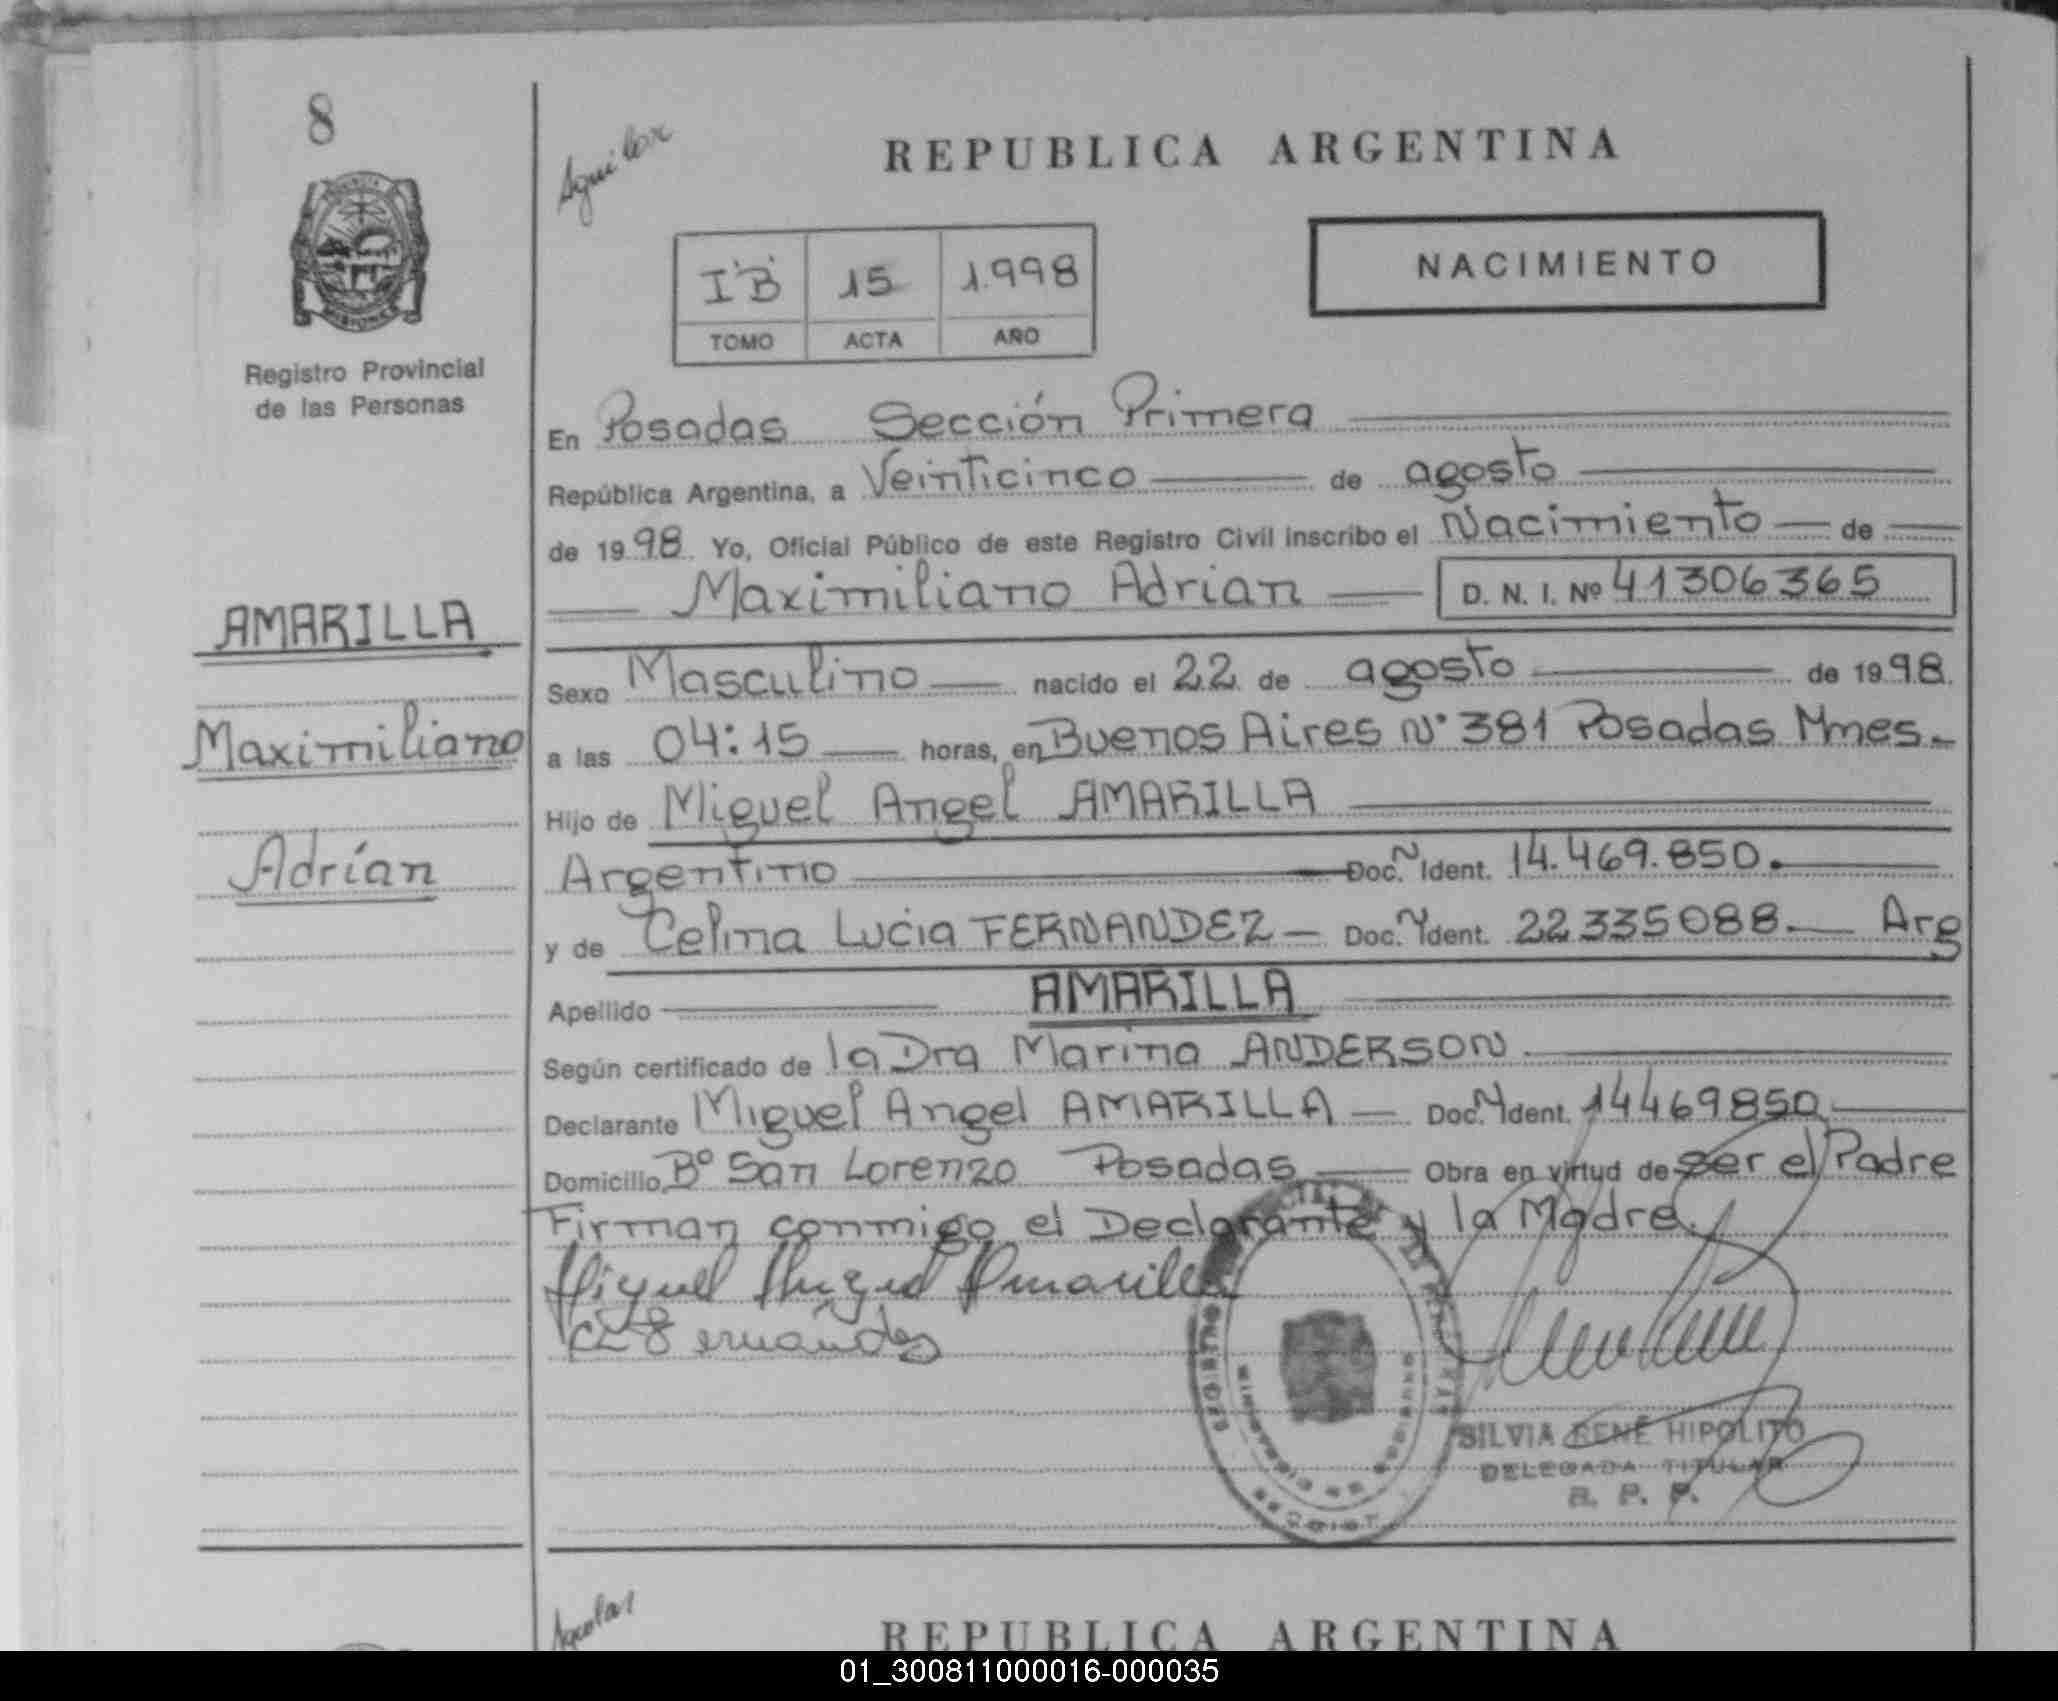 8
Aguilar
REPUBLICA ARGENTINA
MISIONES
Registro Provincial
de las Personas
I "B" 15 1.998
TOMO ACTA AÑO
NACIMIENTO
En Posadas Sección Primera
República Argentina, a Veinticinco de agosto
de 1998 Yo, Oficial Público de este Registro Civil inscribo el Nacimiento de
Maximiliano Adrian D. N. I. Nº 41306365
AMARILLA
Maximiliano
Adrían
Sexo Masculino nacido el 22 de agosto de 1998.
a las 04:15 horas, en Buenos Aires Nº 381 Posadas Mnes.
Hijo de Miguel Angel AMARILLA
Argentino Doc. Ident. 14.469.850.
y de Celina Lucia FERNANDEZ Doc. Ident. 22335088. Arg
Apellido AMARILLA
Según certificado de la Dra Marina ANDERSON
Declarante Miguel Angel AMARILLA Doc. Ident. 14469850
Domicilio Bº San Lorenzo Posadas Obra en virtud de ser el Padre
Firman conmigo el Declarante y la Madre.
Miguel Angel Amarilla
CL Fernández
SILVIA RENÉ HIPOLITO
DELEGADA TITULAR
R. P. P.
REPUBLICA ARGENTINA
01_300811000016-000035